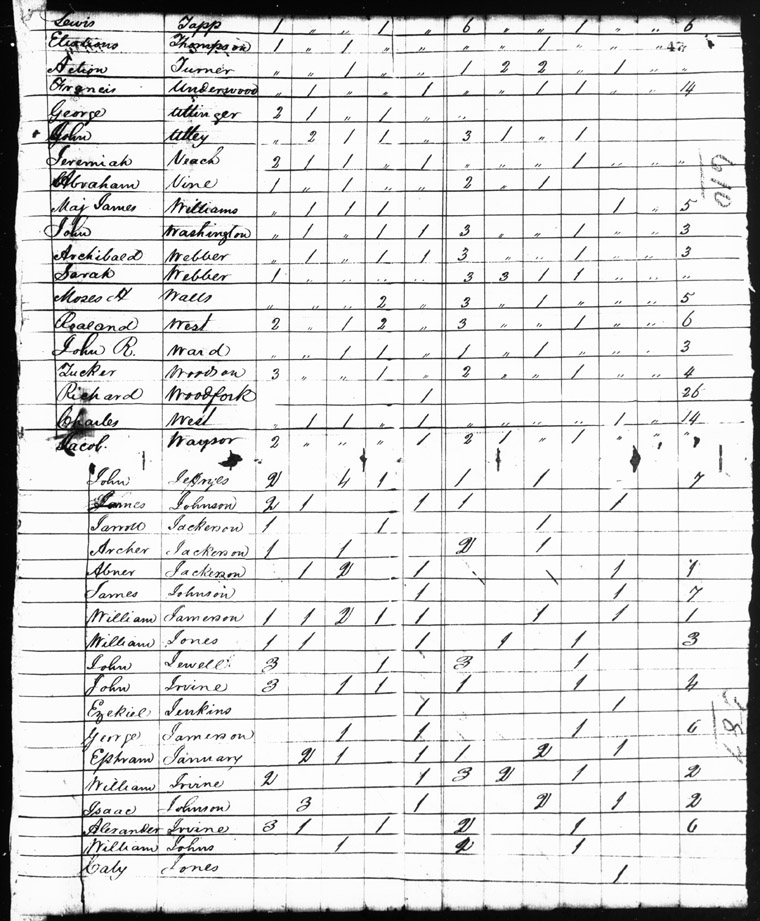 Lewis Tapp 1 " " 1 " 6 " " 1 " " 6
Thompson 1 " 1 " " " " 1 " "
47
Turner " " 1 " " 1 2 2 " 1 " "
Francis Underwood " 1 " " 1 " " 1 1 " " 14
George Uttinger 2 1 " 1 " "
John Utley " 2 1 1 " 3 1 " 1
Jeremiah Veach 2 1 1 " 1 " " " 1 " " "
Abraham Vine 1 " 1 " " 2 " 1
Maj James Williams " 1 1 1 1 " 5
John Washington " 1 " 1 1 3 " " 1 " " 3
Archibald Webber " " 1 " 1 1 3 " " 1 " " 3
Sarah Webber 1 " " " " 3 3 1 1 " " "
Moses A Watts " " " 2 " 3 " 1 " " " 5
West 2 " 1 2 " 3 " " 1 " " 6
John R. Ward " " 1 1 " 1 " 1 " " " 3
Tucker Woodson 3 " " 1 " 2 " " 1 " " 4
Richard Woodfork 1 26
Charles West " 1 1 " 1 " " " " 1 " 14
Jacob Waysor 2 " " " 1 2 1 " 1 " " "
610
John 2 4 1 1 1 7
James Johnson 2 1 1 1 1
Jarrott Jackerson 1 1 1
Archer Jackerson 1 1 2 1
Abner Jackerson 1 2 1 1 1
James Johnson 1 1 7
William Jamerson 1 1 2 1 1 1 1 1
William Jones 1 1 1 1 1 3
John Jewell 3 1 3 1
John Irvine 3 1 1 1 1 4
Ezekiel Jenkins 1 1
George Jamerson 1 1 1 6
Ephram January 2 1 1 1 2 1
William Irvine 2 1 3 2 1 2
Isaac Johnson 3 1 2 1 2
Alexander Irvine 3 1 1 2 1 6
William Johns 1 2 1
Caty Jones 1